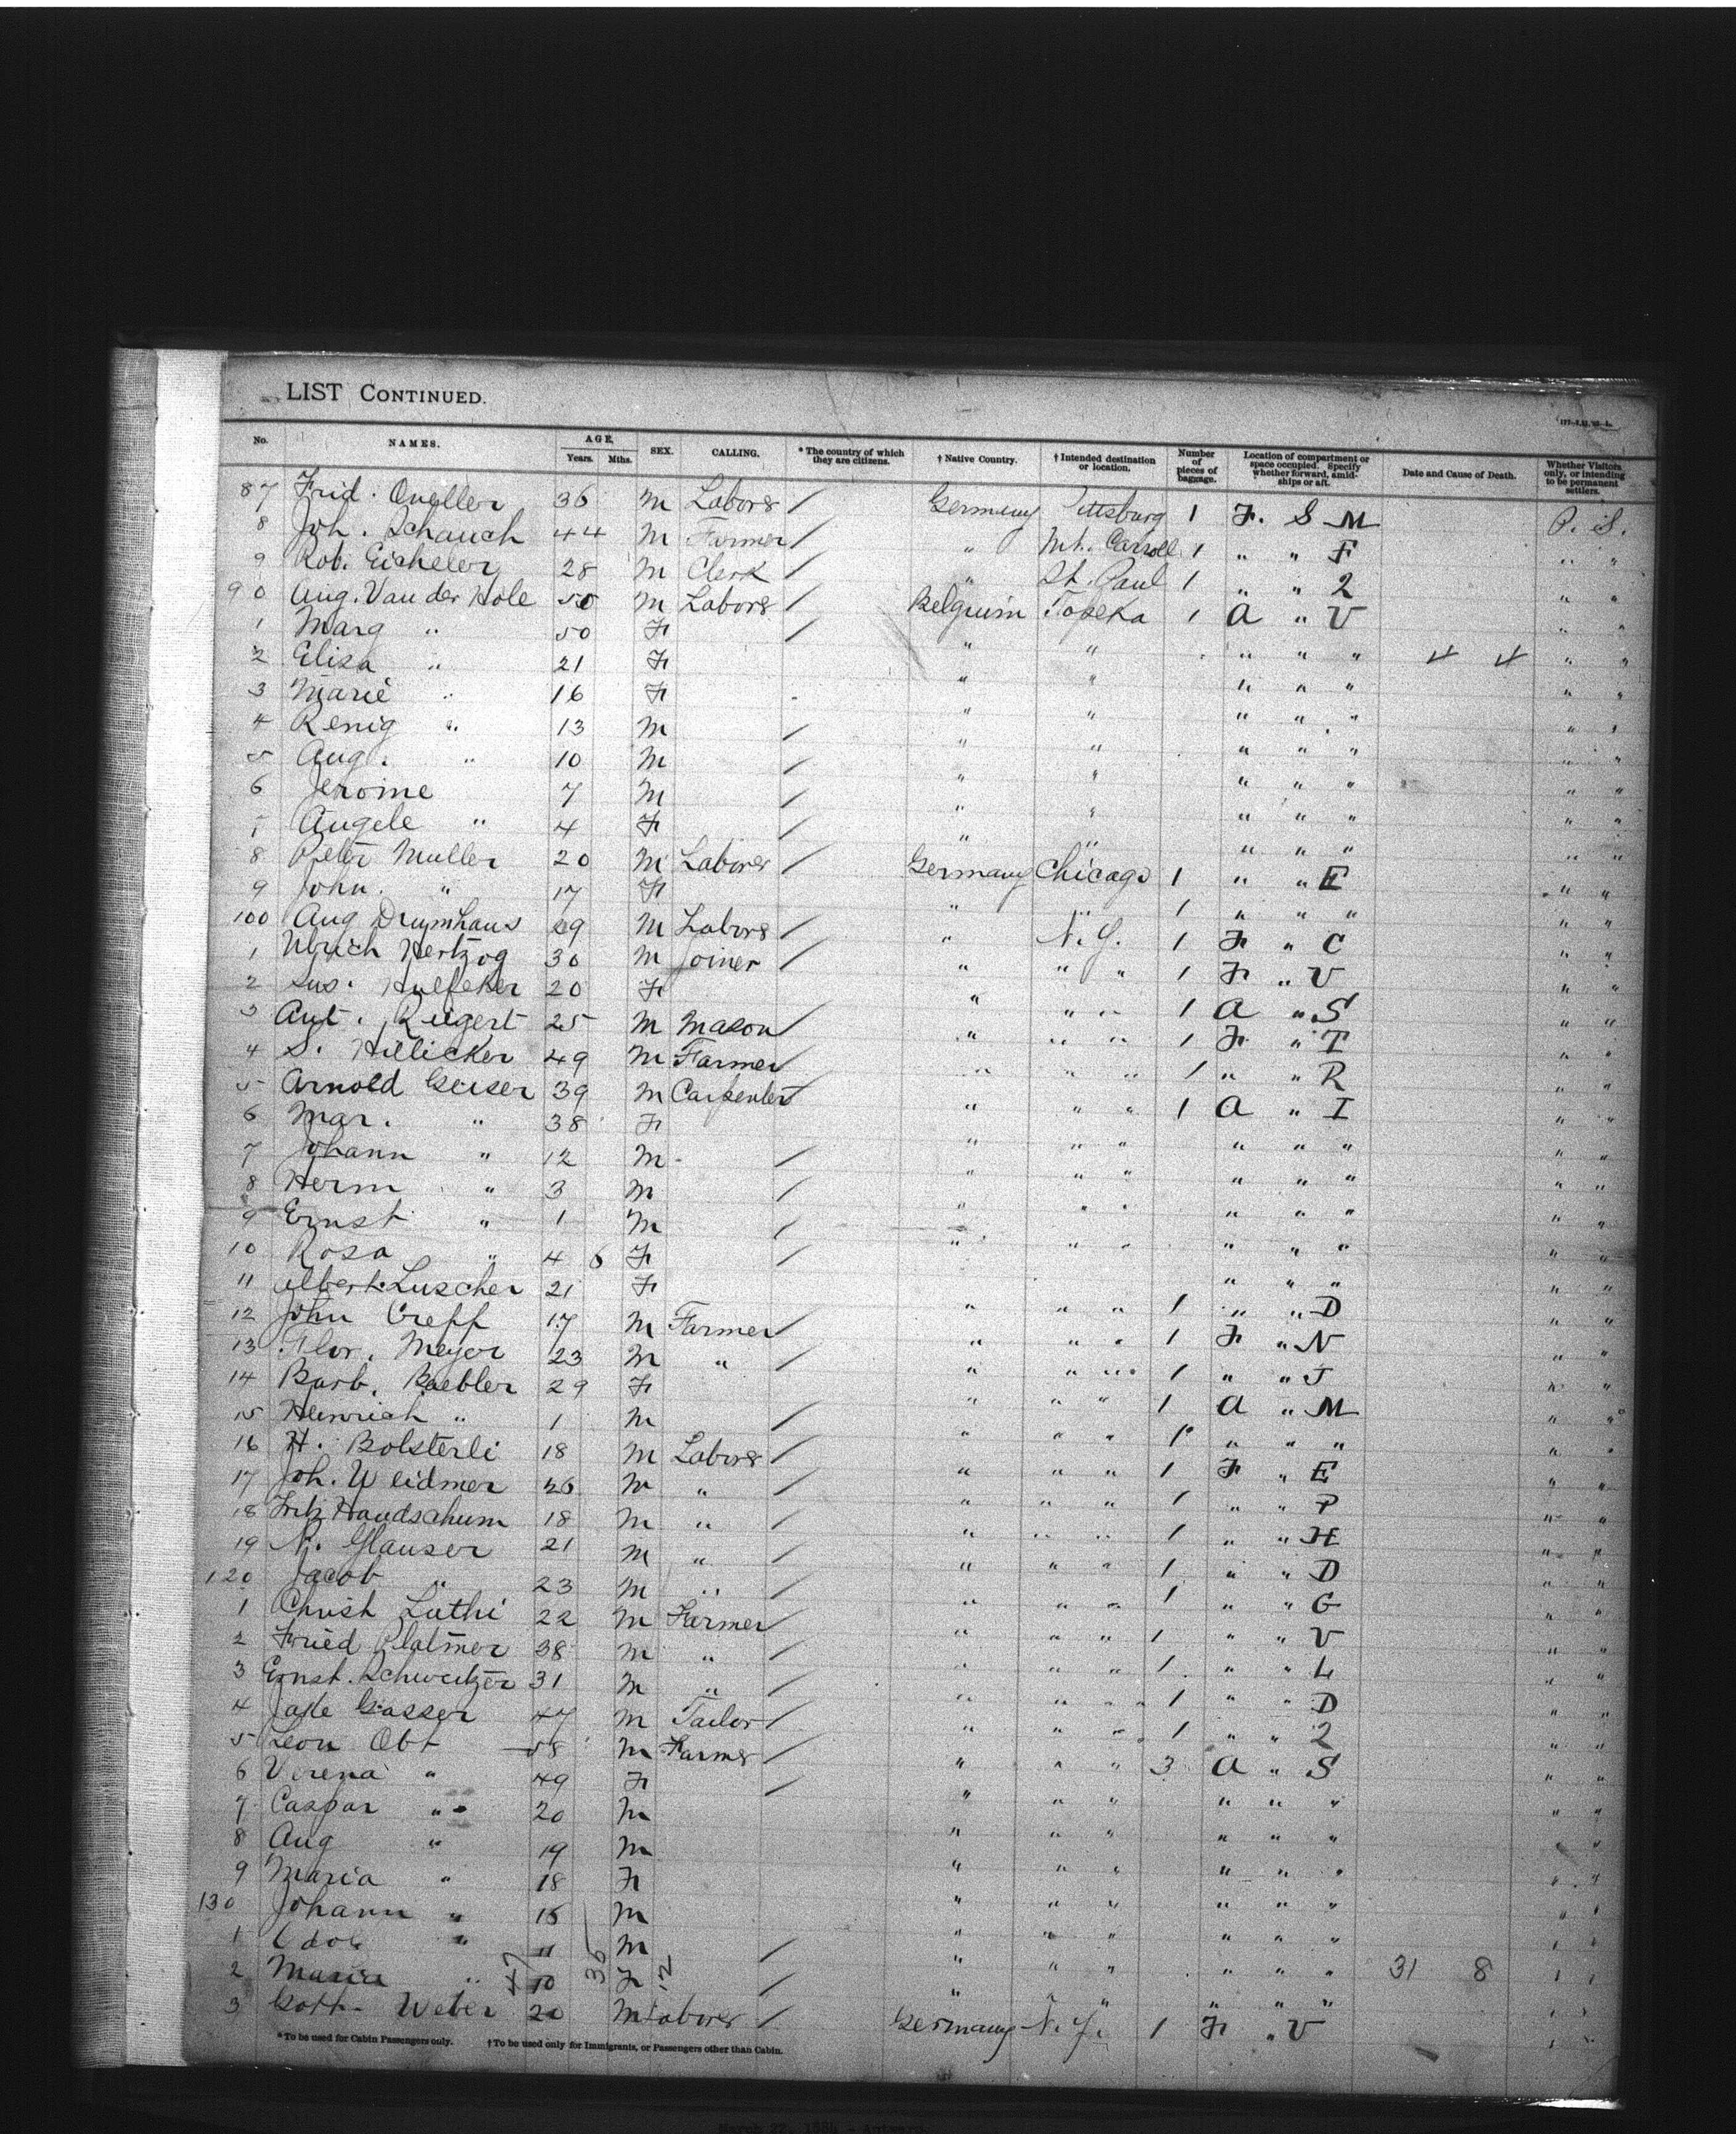 LIST CONTINUED.
No. NAMES. AGE. Years. Mths. SEX. CALLING. * The country of which they are citizens. † Native Country. † Intended destination or location. Number of pieces of baggage. Location of compartment or space occupied. Specify whether forward, amidships or aft. Date and Cause of Death. Whether Visitors only, or intending to be permanent settlers.
87 Frid. Oueller 36 M Labors / Germany Pittsburg 1 F. S M P. S.
8 Joh. Schauch 44 M Farmer / " Mt. Carroll 1 " " F " "
9 Rob. Eicheler 28 M Clerk / " St. Paul 1 " " 2 " "
90 Aug. Van der Hole 50 M Labors / Belgium Topeka 1 A " V " "
1 Marg " 50 F / " " " " " " "
2 Elisa " 21 F " " " " " 4 4 " "
3 Marie " 16 F " " " " " " "
4 Renig " 13 M / " " " " " " "
5 Aug. " 10 M / " " " " " " "
6 Jeroine 7 M / " " " " " " "
7 Augele " 4 F / " " " " " " "
8 Peter Muller 20 M Laborer / Germany Chicago 1 " " E " "
9 John. " 17 F " " 1 " " " " "
100 Aug Drumhaus 29 M Labors / " N. Y. 1 F " C " "
1 Ulrich Hertzog 30 M Joiner / " " " 1 F " V " "
2 Sus. Huefeker 20 F " " " 1 A " S " "
3 Ant. Riegert 25 M Mason / " " " 1 F " T " "
4 S. Hillicker 49 M Farmer " " " 1 " " R " "
5 Arnold Geiser 39 M Carpenter " " " 1 A " I " "
6 Mar. " 38 F " " " " " " " "
7 Johann " 12 M / " " " " " " " "
8 Herm " 3 M / " " " " " " " "
9 Ernst " 1 M / " " " " " " " "
10 Rosa " 4 6 F / " " " " "
11 Albert Luscher 21 F " " " 1 " " D " "
12 John Creff 17 M Farmer / " " " 1 F " N " "
13 Flor. Meyer 23 M " / " " " 1 " " J " "
14 Barb. Baebler 29 F " " " 1 A " M " "
15 Heinrich " 1 M / " " " 1 " " " " "
16 H. Bolsterli 18 M Labors / " " " 1 F " E " "
17 Joh. Weidmer 26 M " / " " " 1 " " P " "
18 Fritz Handschum 18 M " / " " " 1 " " H " "
19 N. Glauser 21 M " / " " " 1 " " D " "
120 Jacob " 23 M " / " " " 1 " " G " "
1 Christ Luthi 22 M Farmer / " " " 1 " " V " "
2 Fried Platmer 38 M " / " " " 1 " " L " "
3 Ernst. Schweitzer 31 M " / " " " 1 " " D " "
4 Gasser 47 M Tailor / " " " 1 " " 2 " "
5 Leon Obt 58 M Farmer / " " " 3 A " S " "
6 Verena " 49 F / " " " " " " " "
7 Caspar " 20 M " " " " " " " "
8 Aug " 19 M " " " " " " " "
9 Maria " 18 F " " " " " " " "
130 Johann " 15 M " " " " " " " "
1 " 11 M / " " " " " " 31 8 " "
2 Maria " 10 F / " " " " " " " "
3 Gott. Weber 20 M Laborer / Germany N. Y. 1 F " V " "
47 36 12
* To be used for Cabin Passengers only. † To be used only for Immigrants, or Passengers other than Cabin.